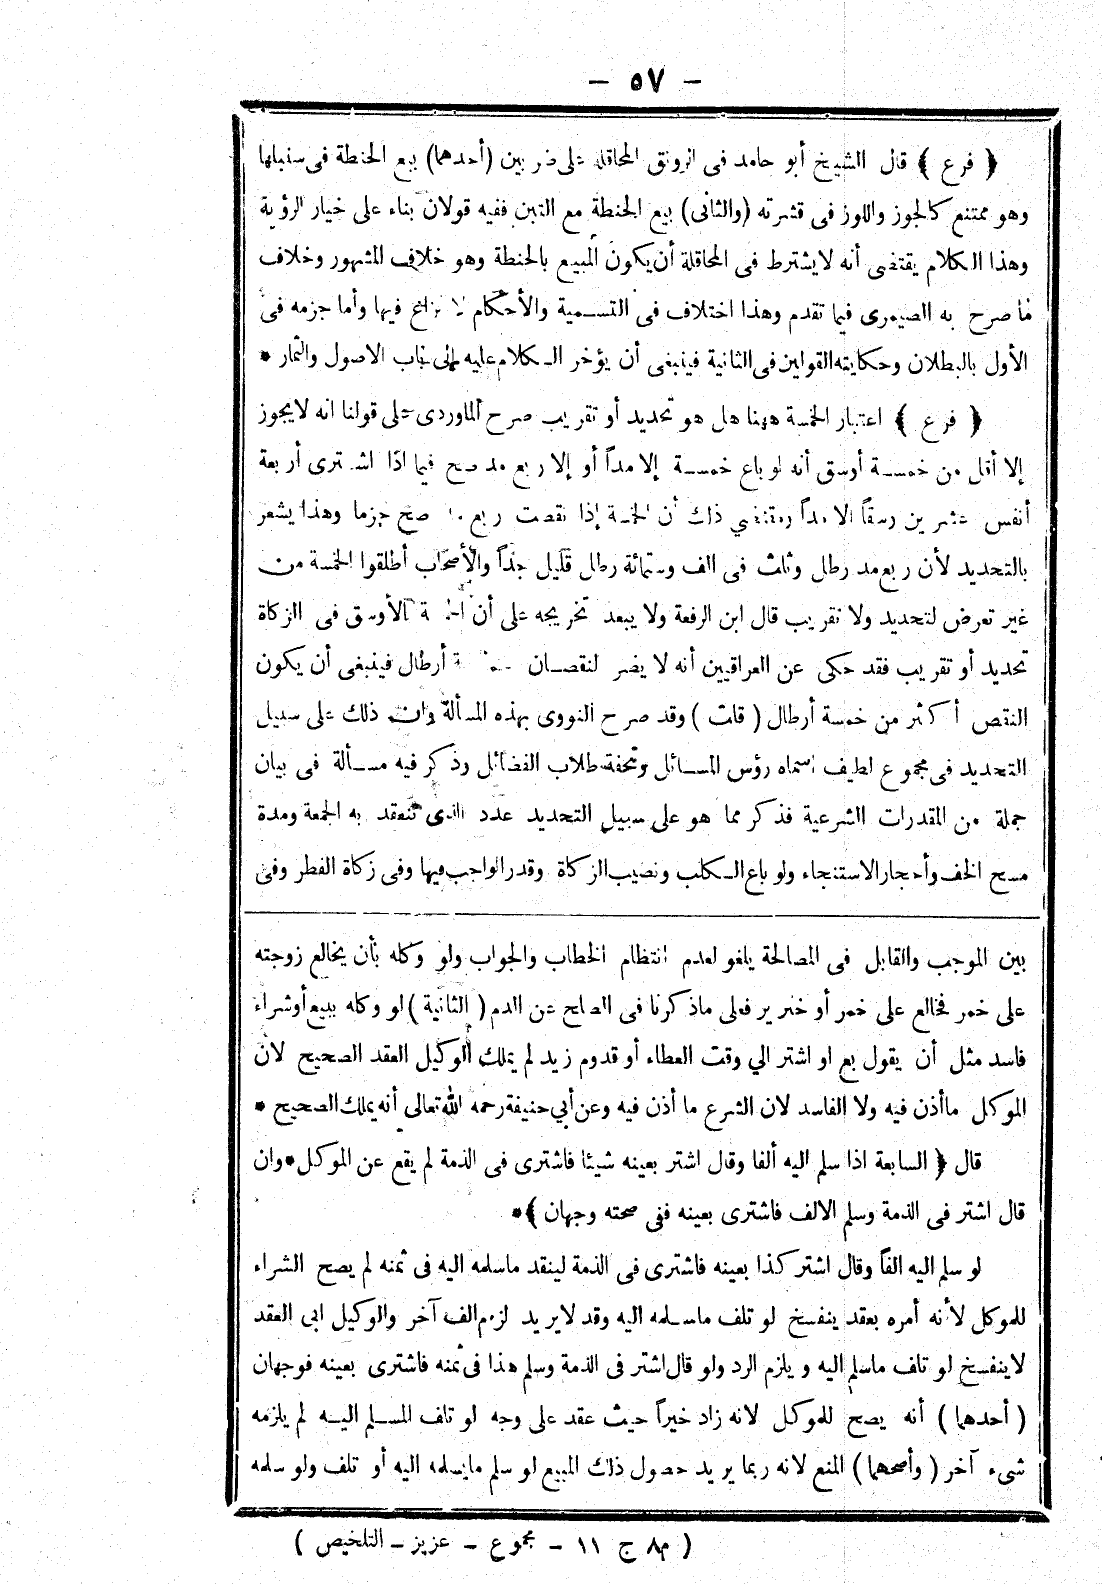 — ٥٧ —
﴿ فرع ﴾ قال الشيخ أبو حامد فى الرونق المحاقلة على ضربين (أحدهما) بيع الحنطة فى سنبلها
وهو ممتنع كالجوز واللوز فى قشرته (والثانى) بيع الحنطة مع التبن ففيه قولان بناء على خيار الرؤية
وهذا الكلام يقتضى أنه لايشترط فى المحاقلة أن يكون المبيع بالحنطة وهو خلاف المشهور وخلاف
ما صرح به الصيمرى فيما تقدم وهذا اختلاف فى التسمية والأحكام لا نزاع فيها وأما جزمه فى
الأول بالبطلان وحكايته القولين فى الثانية فينبغى أن يؤخر الكلام عليه إلى باب الاصول والثمار *
﴿ فرع ﴾ اعتبار الخمسة ههنا هل هو تحديد أو تقريب صرح الماوردى على قولنا انه لايجوز
إلا أقل من خمسة أوسق أنه لو باع خمسة إلا مداً أو إلا ربع مد صح فيما اذا اشترى أربعة
أنفس عشرين وسقاً الا مداً ومقتضى ذلك أن الخمسة إذا نقصت ربع مد صح جزما وهذا يشعر
بالتحديد لأن ربع مد رطل وثلث فى الف وستمائة رطل قليل جداً والأصحاب أطلقوا الخمسة من
غير تعرض لتحديد ولا تقريب قال ابن الرفعة ولا يبعد تخريجه على أن الخمسة الأوسق فى الزكاة
تحديد أو تقريب فقد حكى عن العراقيين أنه لا يضر لنقصان خمسة أرطال فينبغى أن يكون
النقص أكثر من خمسة أرطال ( قلت ) وقد صرح النووى بهذه المسألة وان ذلك على سبيل
التحديد فى مجموع لطيف اسماه رؤس المسائل وتحفة طلاب الفضائل وذكر فيه مسألة فى بيان
جملة من المقدرات الشرعية فذكر مما هو على سبيل التحديد عدد الذى تنعقد به الجمعة ومدة
مسح الخف وأحجار الاستنجاء ولو باع الكلب ونصيب الزكاة وقدر الواجب فيها وفى زكاة الفطر وفى
بين الموجب والقابل فى المصالحة يلغو لعدم انتظام الخطاب والجواب ولو وكله بأن يخالع زوجته
على خمر فخالع على خمر أو خنزير فعلى ماذكرنا فى الصلح عن الدم ( الثانية ) لو وكله ببيع أوشراء
فاسد مثل أن يقول بع او اشتر الي وقت العطاء أو قدوم زيد لم يملك الوكيل العقد الصحيح لان
الموكل ماأذن فيه ولا الفاسد لان الشرع ما أذن فيه وعن أبي حنيفة رحمه الله تعالي أنه يملك الصحيح *
قال ﴿ السابعة اذا سلم اليه ألفا وقال اشتر بعينه شيئا فاشترى فى الذمة لم يقع عن الموكل * وان
قال اشتر فى الذمة وسلم الالف فاشترى بعينه ففى صحته وجهان ﴾*
لو سلم اليه الفاً وقال اشتر كذا بعينه فاشترى فى الذمة لينقد ماسلمه اليه فى ثمنه لم يصح الشراء
للموكل لأنه أمره بعقد ينفسخ لو تلف ماسلمه اليه وقد لايريد لزوم الف آخر والوكيل ابى العقد
لاينفسخ لو تلف ماسلم اليه و يلزم الرد ولو قال اشتر فى الذمة وسلم هذا فى ثمنه فاشترى بعينه فوجهان
( أحدهما ) أنه يصح للموكل لانه زاد خيراً حيث عقد على وجه لو تلف المسلم اليه لم يلزمه
شىء آخر ( وأصحهما ) المنع لانه ربما يريد حصول ذلك المبيع لو سلم مايسلمه اليه أو تلف ولو سلمه
( م٨ ج ١١ – مجموع – عزيز – التلخيص )